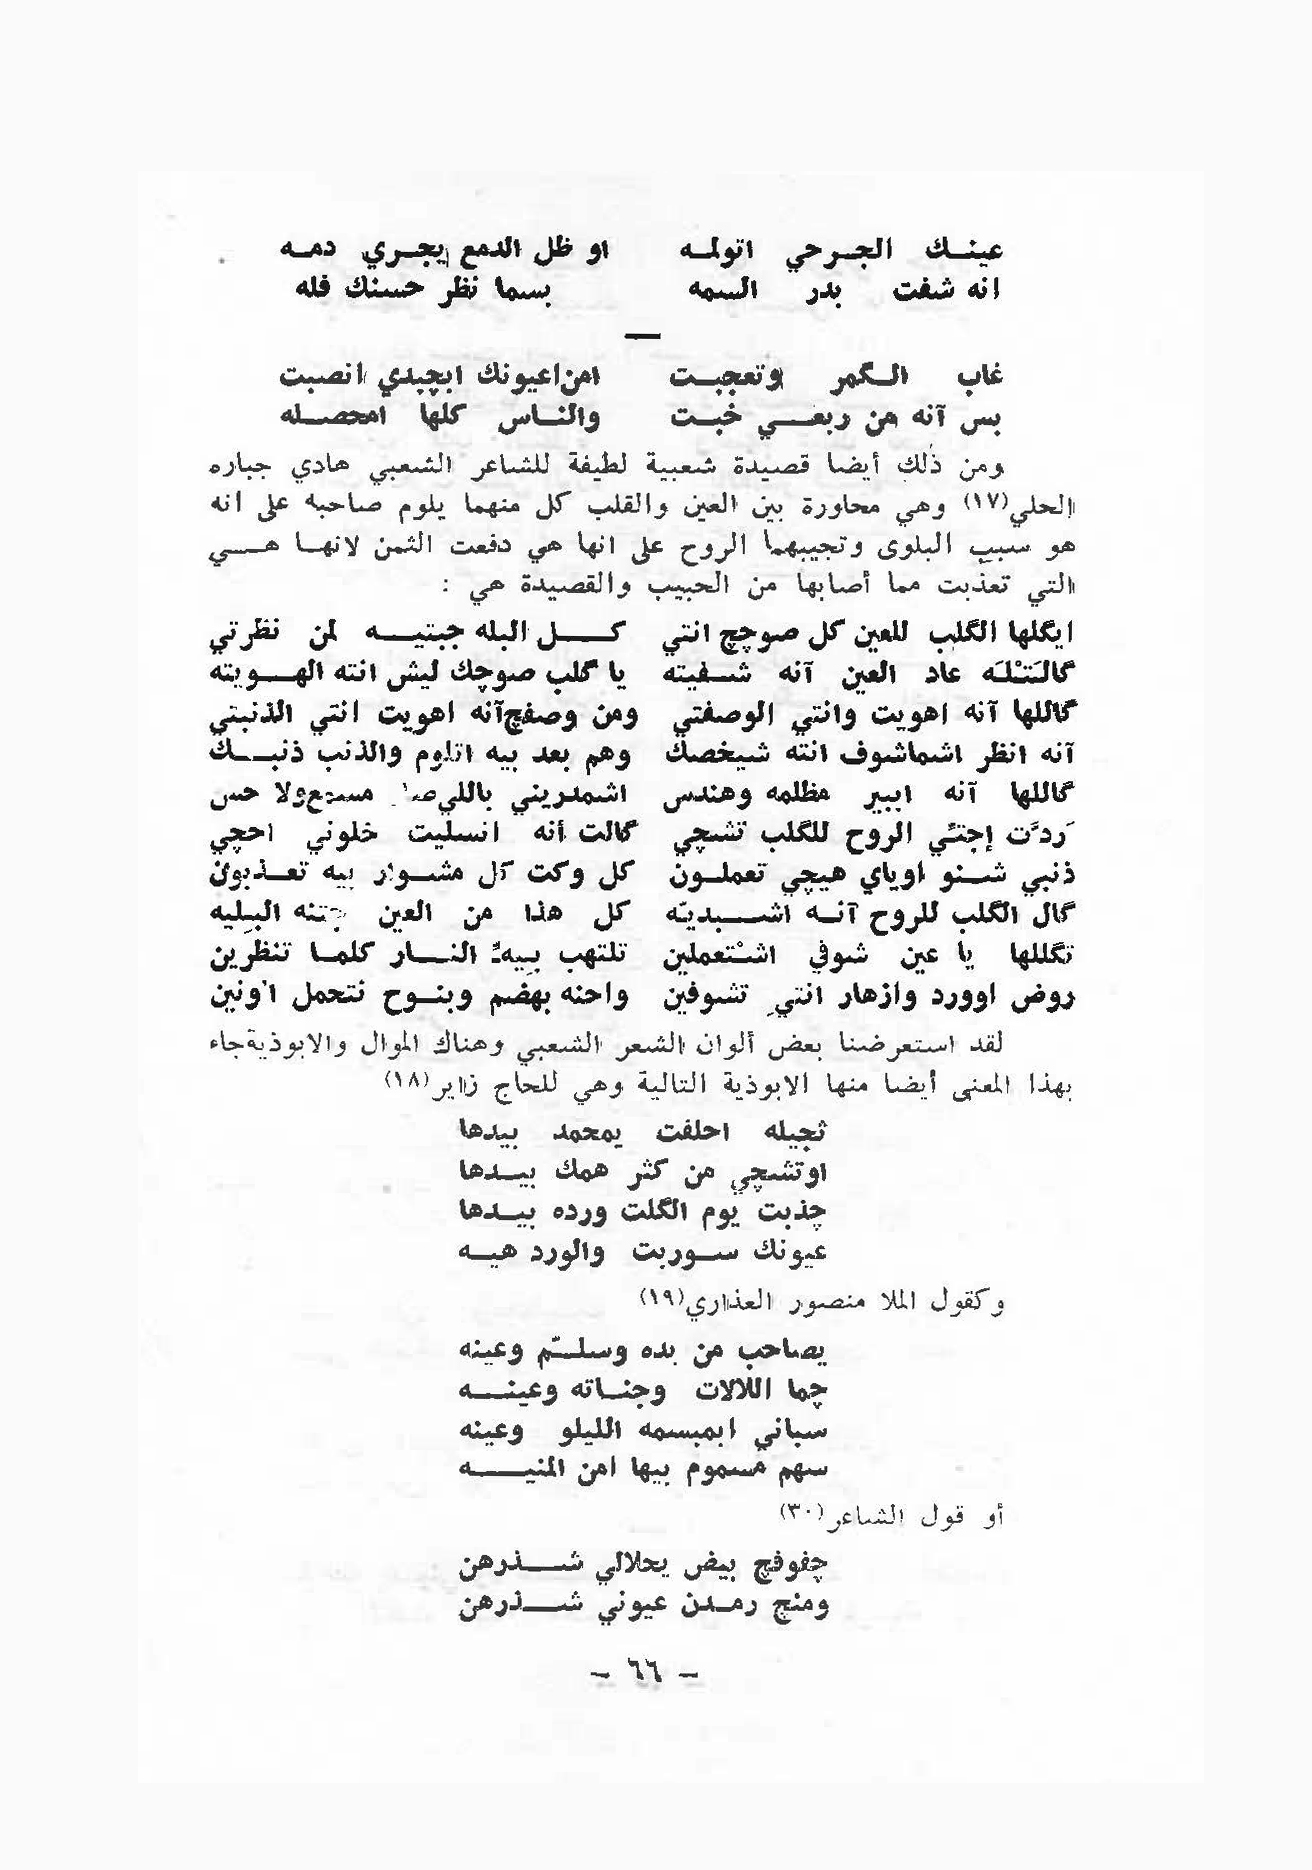 عينك الجرحي اتولمه او ظل الدمع يجري دمه
انه شفت بدر السمه بسما نظر حسنك فله
غاب الگمر وتعجبت امن اعيونك ابچبدي انصبت
بس آنه من ربعي خبت والناس كلها امحصله
ومن ذلك أيضا قصيدة شعبية لطيفة للشاعر الشعبي هادي جباره
الحلي(١٧) وهي محاورة بين العين والقلب كل منهما يلوم صاحبه على انه
هو سبب البلوى وتجيبهما الروح على انها هي دفعت الثمن لانها هي
التي تعذبت مما أصابها من الحبيب والقصيدة هي :
ايگلها الگلب للعين كل صوچچ انتي كل البله جبتيه لمن نظرتي
گالتله عاد العين آنه شفيته يا گلب صوچك ليش انته الهويته
گاللها آنه اهويت وانتي الوصفتي ومن وصفچ آنه اهويت انتي الذنبتي
آنه انظر اشماشوف انته شيخصك وهم بعد بيه اتلوم والذنب ذنبك
گاللها آنه ابير مظلمه وهندس اشمدريني باللي مسمع ولا حس
ردت إجتي الروح للگلب تشچي گالت أنه انسليت خلوني احچي
ذنبي شنو اوياي هيچي تعملون كل وكت آل مشوار بيه تعذبون
گال الگلب للروح آنه اشبديه كل هذا من العين جتنه البليه
تگللها يا عين شوفي اشتعملين تلتهب بيه النار كلما تنظرين
روض اوورد وازهار انتي تشوفين واحنه بهضم وبنوح نتحمل اونين
لقد استعرضنا بعض ألوان الشعر الشعبي وهناك الموال والابوذية جاء
بهذا المعنى أيضا منها الابوذية التالية وهي للحاج زاير(١٨)
ثجيله احلفت يمحمد بيدها
اوتشچي من كثر همك بيدها
چذبت يوم الگلت ورده بيدها
عيونك سوربت والورد هيه
وكقول الملا منصور العذاري(١٩)
يصاحب من بده وسلتم وعينه
چما اللالات وجناته وعينه
سباني ابمبسمه الليلو وعينه
سهم مسموم بيها امن المنيه
أو قول الشاعر(٣٠)
چفوفچ بيض يحلالي شذرهن
ومنچ رمدن عيوني شذرهن
- ٦٦ -